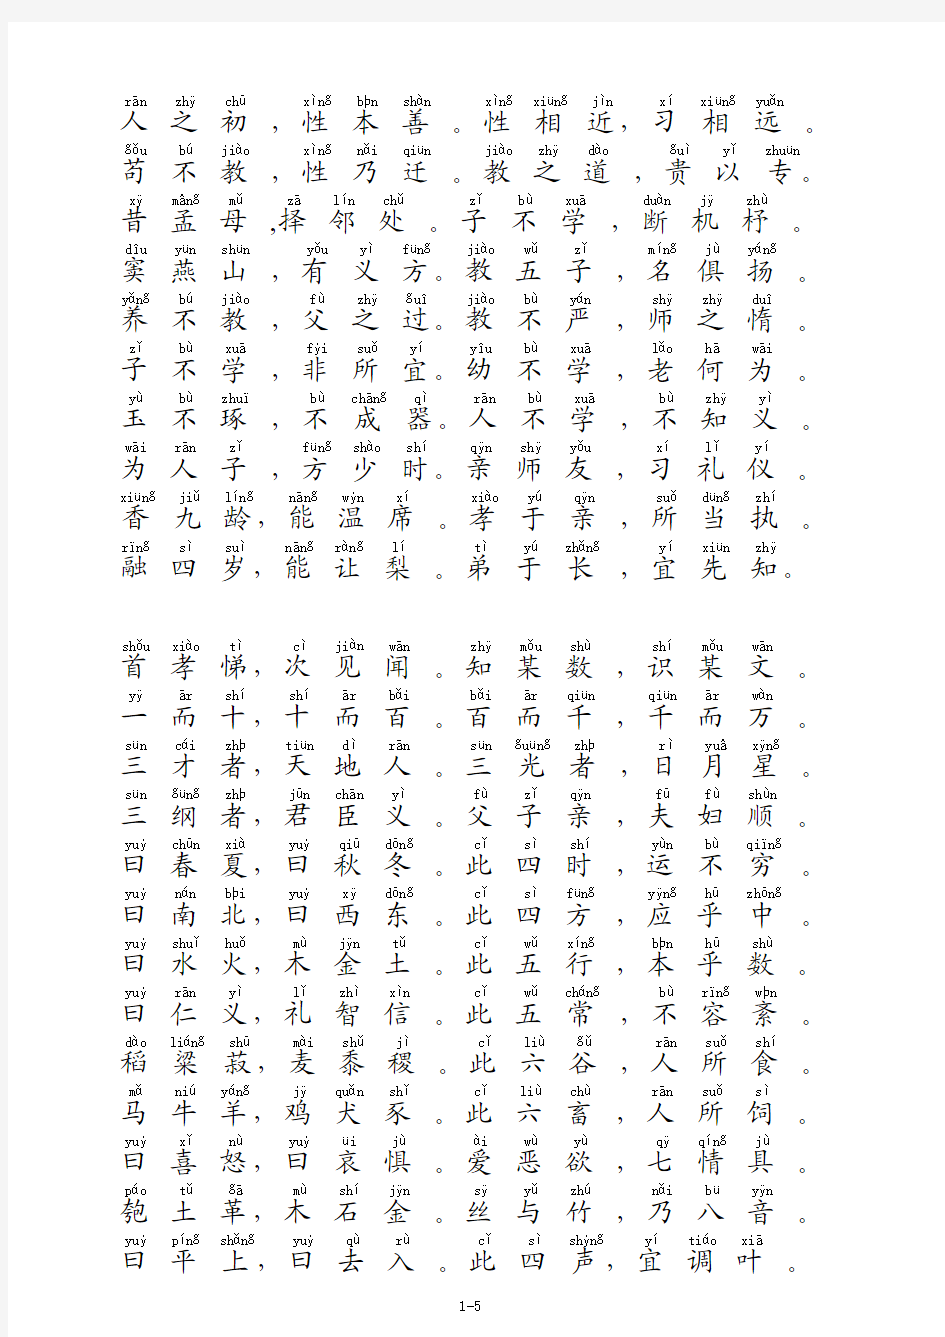 rān zhÿ chū xìnɡ bþn shàn xìnɡ xiünɡ jìn xí xiünɡ yuǎn
人之初，性本善。性相近，习相远。
ɡǒu bú jiào xìnɡ nǎi qiün jiào zhÿ dào ɡuì yǐ zhuün
苟不教，性乃迁。教之道，贵以专。
xÿ mânɡ mǔ zā lín chǔ zǐ bù xuā duàn jÿ zhù
昔孟母,择邻处。子不学，断机杼。
dîu yün shün yǒu yì fünɡ jiào wǔ zǐ mínɡ jù yánɡ
窦燕山，有义方。教五子，名俱扬。
yǎnɡ bú jiào fù zhÿ ɡuî jiào bù yán shÿ zhÿ duî
养不教，父之过。教不严，师之惰。
zǐ bù xuā fýi suǒ yí yîu bù xuā lǎo hā wāi
子不学，非所宜。幼不学，老何为。
yù bù zhuï bù chānɡ qì rān bù xuā bù zhÿ yì
玉不琢，不成器。人不学，不知义。
wāi rān zǐ fünɡ shào shí qÿn shÿ yǒu xí lǐ yí
为人子，方少时。亲师友，习礼仪。
xiünɡ jiǔ línɡ nānɡ wýn xí xiào yú qÿn suǒ dünɡ zhí
香九龄，能温席。孝于亲，所当执。
rïnɡ sì suì nānɡ rànɡ lí tì yú zhǎnɡ yí xiün zhÿ
融四岁，能让梨。弟于长，宜先知。
shǒu xiào tì cì jiàn wān zhÿ mǒu shù shí mǒu wān
首孝悌，次见闻。知某数，识某文。
yÿ ār shí shí ār bǎi bǎi ār qiün qiün ār wàn
一而十，十而百。百而千，千而万。
sün cái zhþ tiün dì rān sün ɡuünɡ zhþ rì yuâ xÿnɡ
三才者，天地人。三光者，日月星。
sün ɡünɡ zhþ jūn chān yì fù zǐ qÿn fū fù shùn
三纲者，君臣义。父子亲，夫妇顺。
yuý chūn xià yuý qiū dōnɡ cǐ sì shí yùn bù qiïnɡ
曰春夏，曰秋冬。此四时，运不穷。
yuý nán bþi yuý xÿ dōnɡ cǐ sì fünɡ yÿnɡ hū zhōnɡ
曰南北，曰西东。此四方，应乎中。
yuý shuǐ huǒ mù jÿn tǔ cǐ wǔ xínɡ bþn hū shù
曰水火，木金土。此五行，本乎数。
yuý rān yì lǐ zhì xìn cǐ wǔ chánɡ bù rïnɡ wþn
曰仁义，礼智信。此五常，不容紊。
dào liánɡ shū mài shǔ jì cǐ liù ɡǔ rān suǒ shí
稻粱菽，麦黍稷。此六谷，人所食。
mǎ niú yánɡ jÿ quǎn shǐ cǐ liù chù rān suǒ sì
马牛羊，鸡犬豕。此六畜，人所饲。
yuý xǐ nù yuý üi jù ài wù yù qÿ qínɡ jù
曰喜怒，曰哀惧。爱恶欲，七情具。
páo tǔ ɡā mù shí jÿn sÿ yǔ zhú nǎi bü yÿn
匏土革，木石金。丝与竹，乃八音。
yuý pínɡ shǎnɡ yuý qù rù cǐ sì shýnɡ yí tiáo xiā
曰平上，曰去入。此四声，宜调叶。
1-5